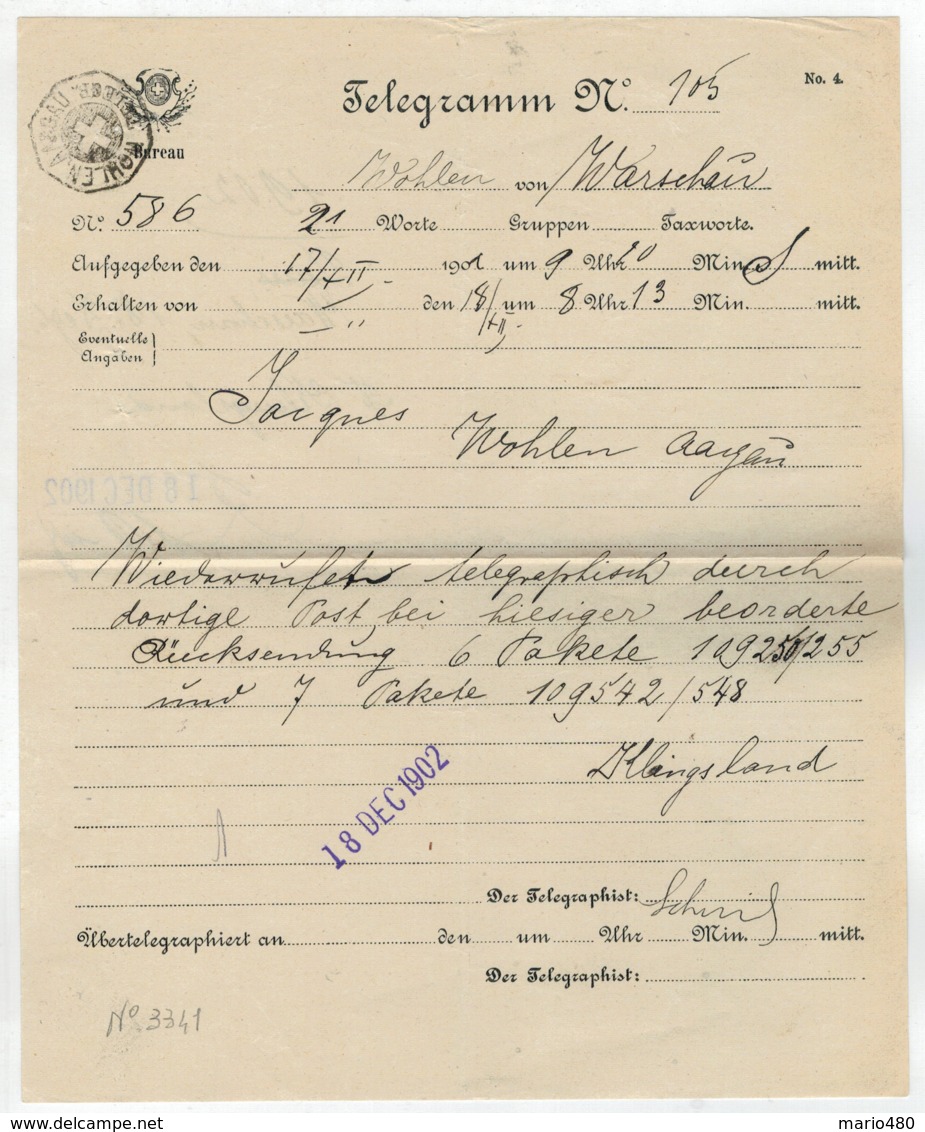 Telegramm No. 105
No. 4.
WOHLEN AARGAU TELEGR.
Bureau
Wohlen von Warschau
No. 586 21 Worte Gruppen Taxworte.
Aufgegeben den 17/XII 1902 um 9 Uhr 20 Min. S mitt.
Erhalten von den 18/XII um 8 Uhr 13 Min. mitt.
Eventuelle
Angaben
Jacques
Wohlen Aargau
18 DEC 1902
Wiederrufet telegraphisch durch
dortige Post bei hiesiger beorderte
Rücksendung 6 Pakete 109250/255
und 7 Pakete 109542/548
Klingsland
18 DEC 1902
1
Der Telegraphist: Schmid
Übertelegraphiert an den um Uhr Min. mitt.
Der Telegraphist:
No 3341
mario480